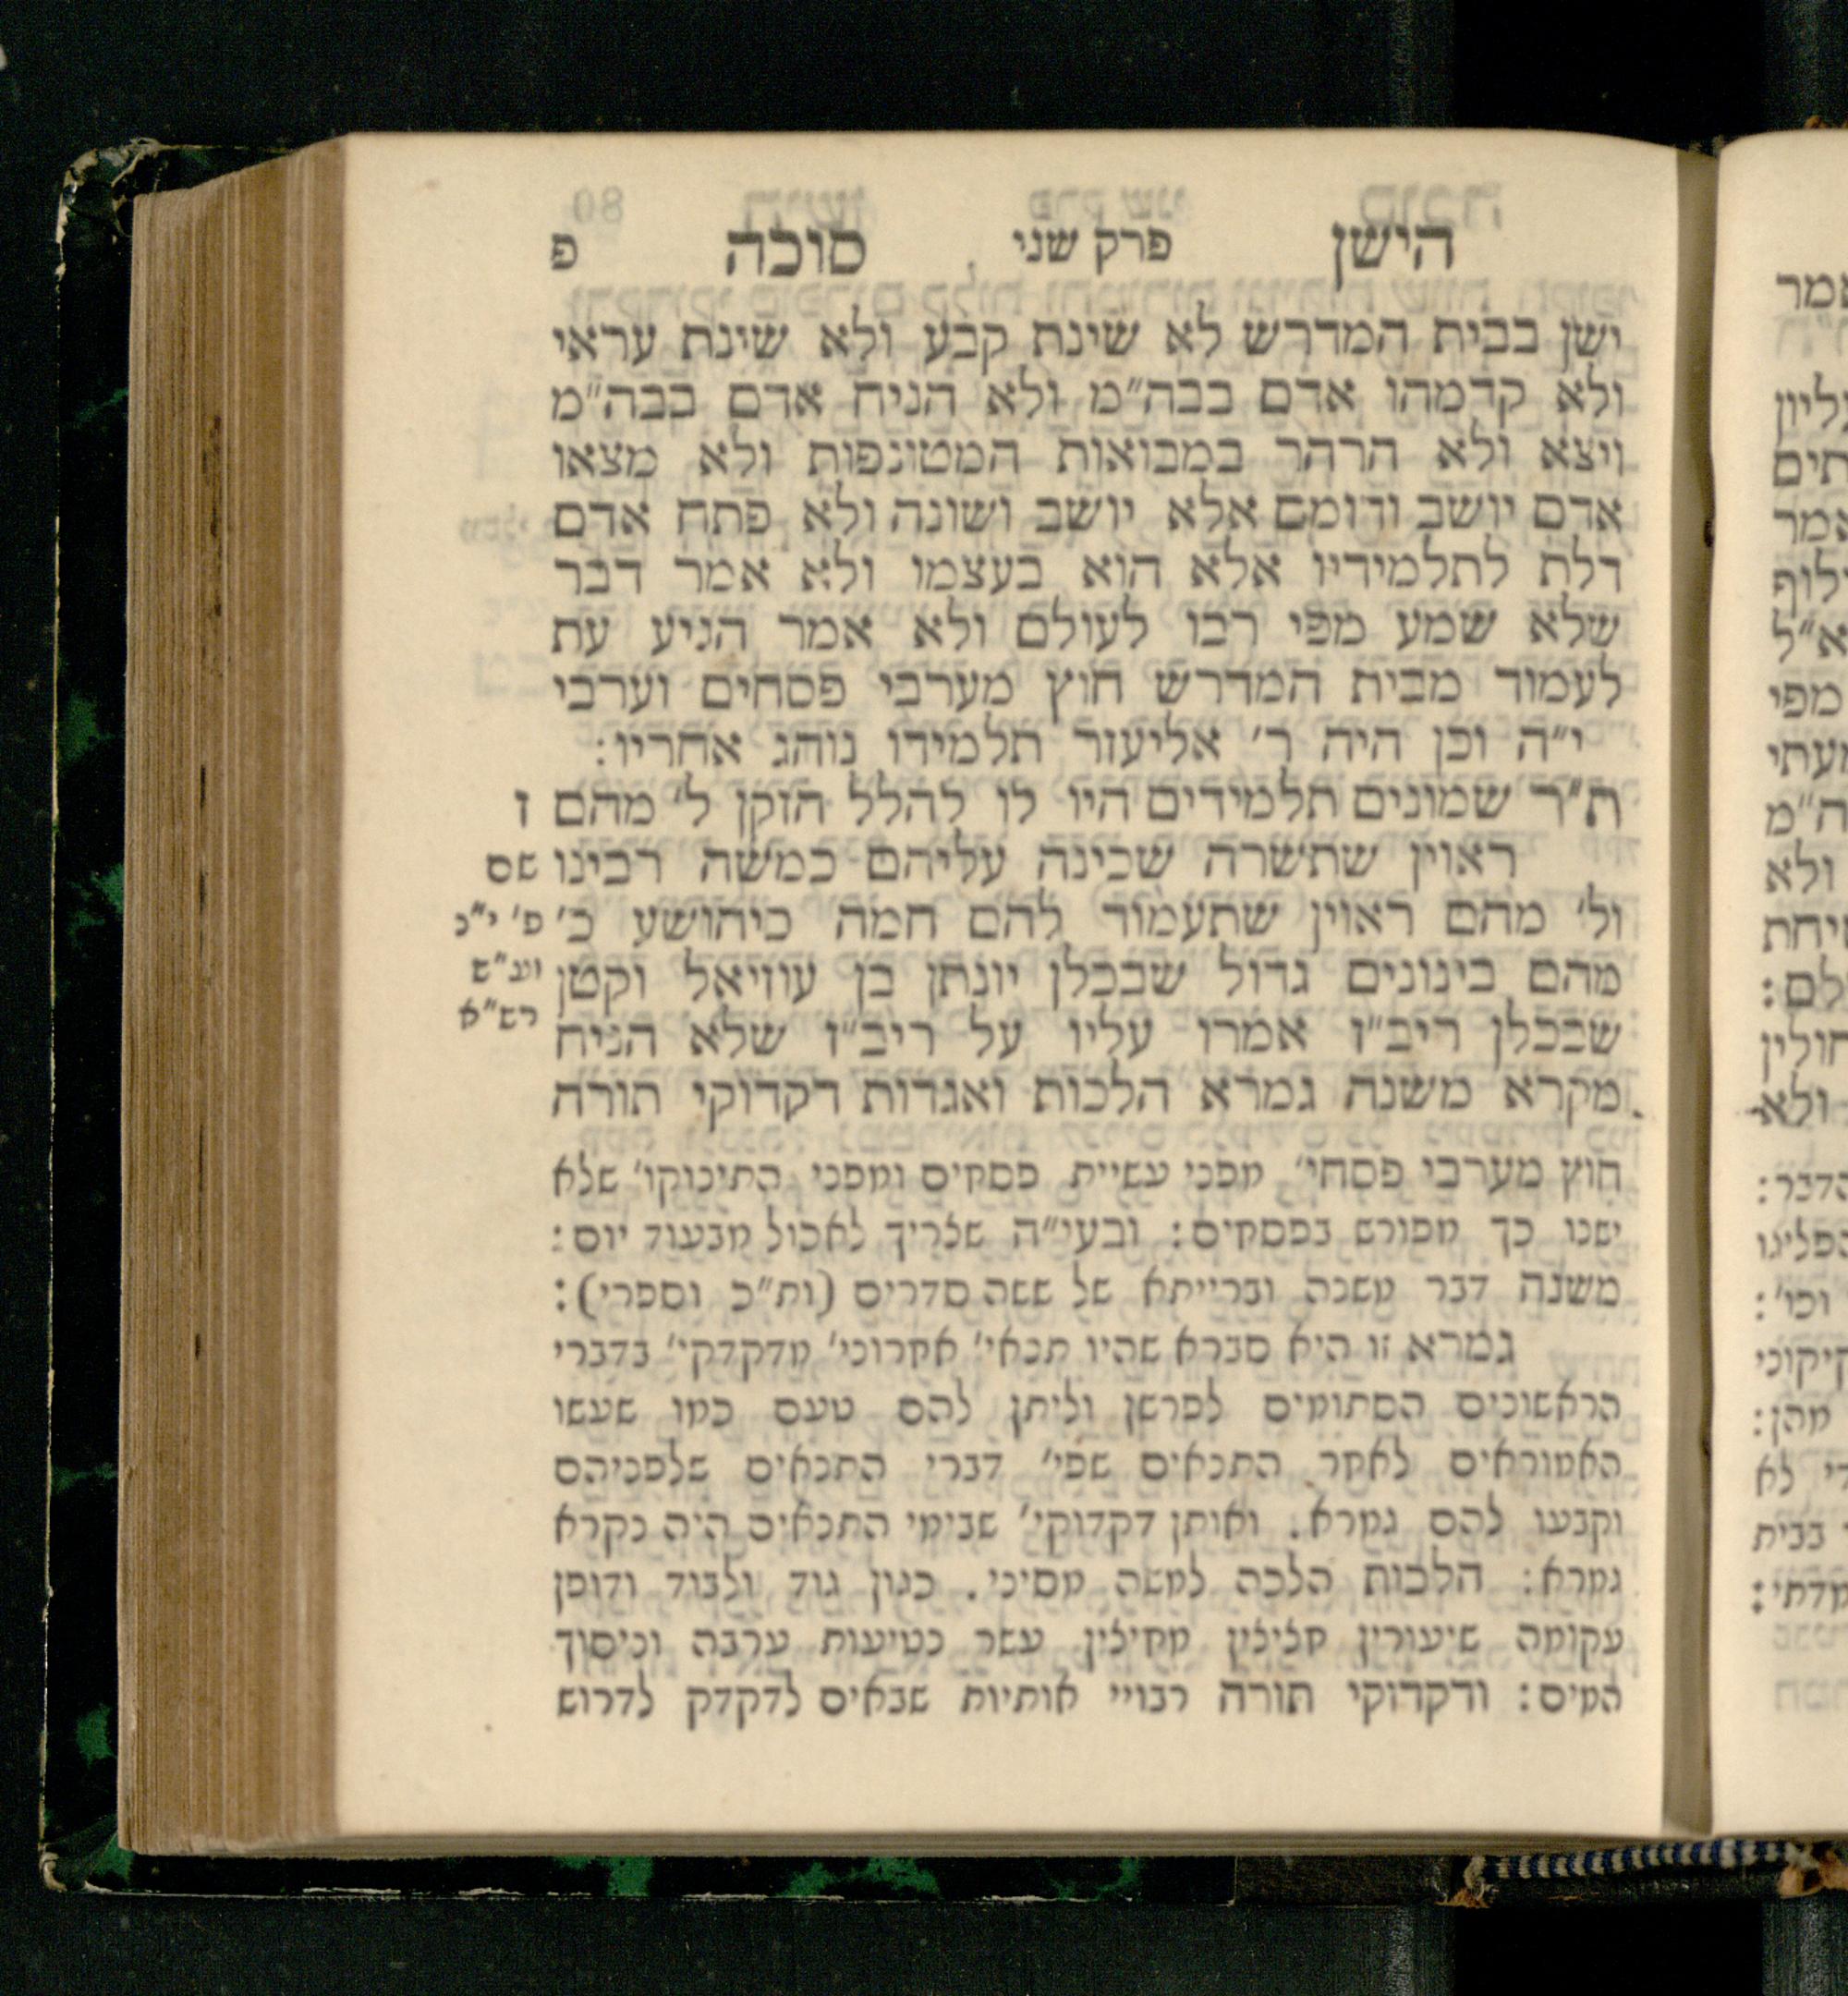 הישן פרק שני סוכה פ
ישן בבית המדרש לא שינת קבע ולא שינת עראי
ולא קדמהו אדם בבה"מ ולא הניח אדם בבה"מ
ויצא ולא הרהר במבואות המטונפות ולא מצאו
אדם יושב ודומם אלא יושב ושונה ולא פתח אדם
דלת לתלמידיו אלא הוא בעצמו ולא אמר דבר
שלא שמע מפי רבו לעולם ולא אמר הגיע עת
לעמוד מבית המדרש חוץ מערבי פסחים וערבי
י"ה וכן היה ר' אליעזר תלמידו נוהג אחריו:
ת"ר שמונים תלמידים היו לו להלל הזקן ל' מהם ז
ראוין שתשרה שכינה עליהם כמשה רבינו שם
ול' מהם ראוין שתעמוד להם חמה כיהושע כ' פ' י"כ
מהם בינונים גדול שבכלן יונתן בן עוזיאל וקטן ועג"ש
שבכלן ריב"ז אמרו עליו על ריב"ז שלא הניח רש"א
מקרא משנה גמרא הלכות ואגדות דקדוקי תורה
חוץ מערבי פסחי' מפני עשיית פסחים ומפני התינוקו' שלא
ישנו כך מפורש בפסחים: ובעי"ה שצריך לאכול מבעוד יום:
משנה דבר משנה וברייתא של ששה סדרים (ות"כ וספרי):
גמרא זו היא סברא שהיו תנאי' אחרוני' מדקדקי' בדברי
הראשונים הסתומים לפרשן וליתן להם טעם כמו שעשו
האמוראים לאחר התנאים שפי' דברי התנאים שלפניהם
וקבעו להם גמרא. ואותן דקדוקי' שבימי התנאים היה נקרא
גמרא: הלכות הלכה למשה מסיני. כגון גוד ולבוד ודופן
עקומה שיעורין חציצין מחיצין עשר נטיעות ערבה וניסוך
המים: ודקדוקי תורה רבויי אותיות שבאים לדקדק לדרוש